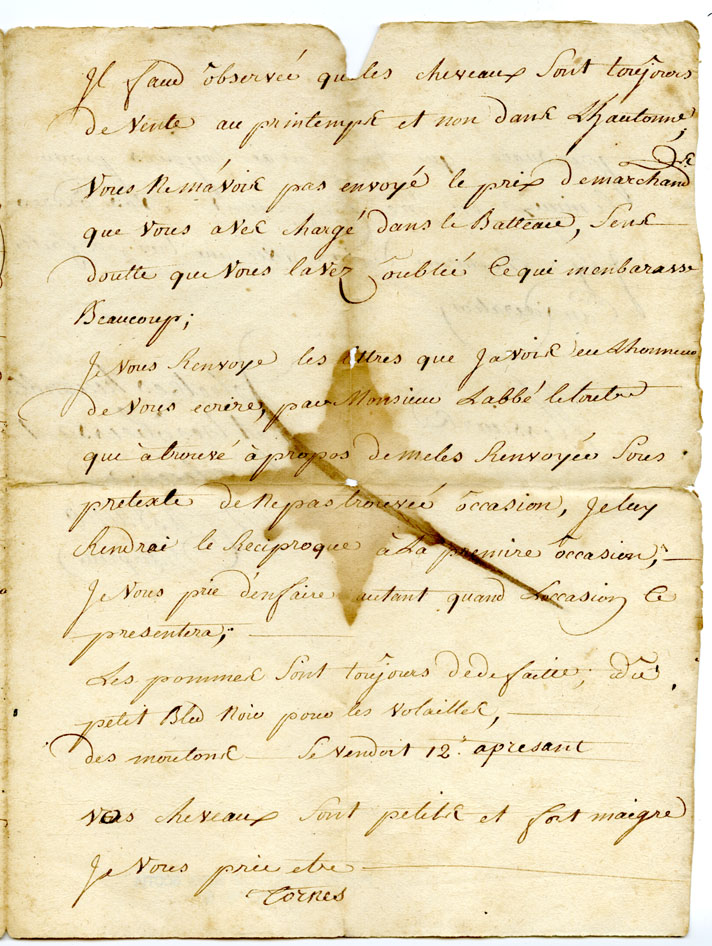 Il faud observée que les cheveaux Sont toujours
de Vente au printemps et non dans Lhautonne,
Vous Ne m'avois pas envoyé le prix de marchandse
que vous avez chargé dans le Batteau, Sens
doutte que Vous lavez oublié Ce qui menbarasse
Beaucoup;
Je Vous Renvoye les lettres que Javois eu Lhonneur
de Vous ecrire, par Monsieur Labbé
que à trouvé à propos de me les Renvoyée Sous
pretexte de Ne pas trouvée occasion, Je luy
Rendrai le Reciproque à La premire occasion,
Je Vous prie d'en faire autant quand Loccasion Ce
presentera;
Les pommes Sont toujours de defaitte; du
petit Bled Noir pour les Volailles,
des moutons Se Vendoit 12 apresant
Vos cheveaux Sont petits et fort maigre
Je Vous prie etre
Tornes